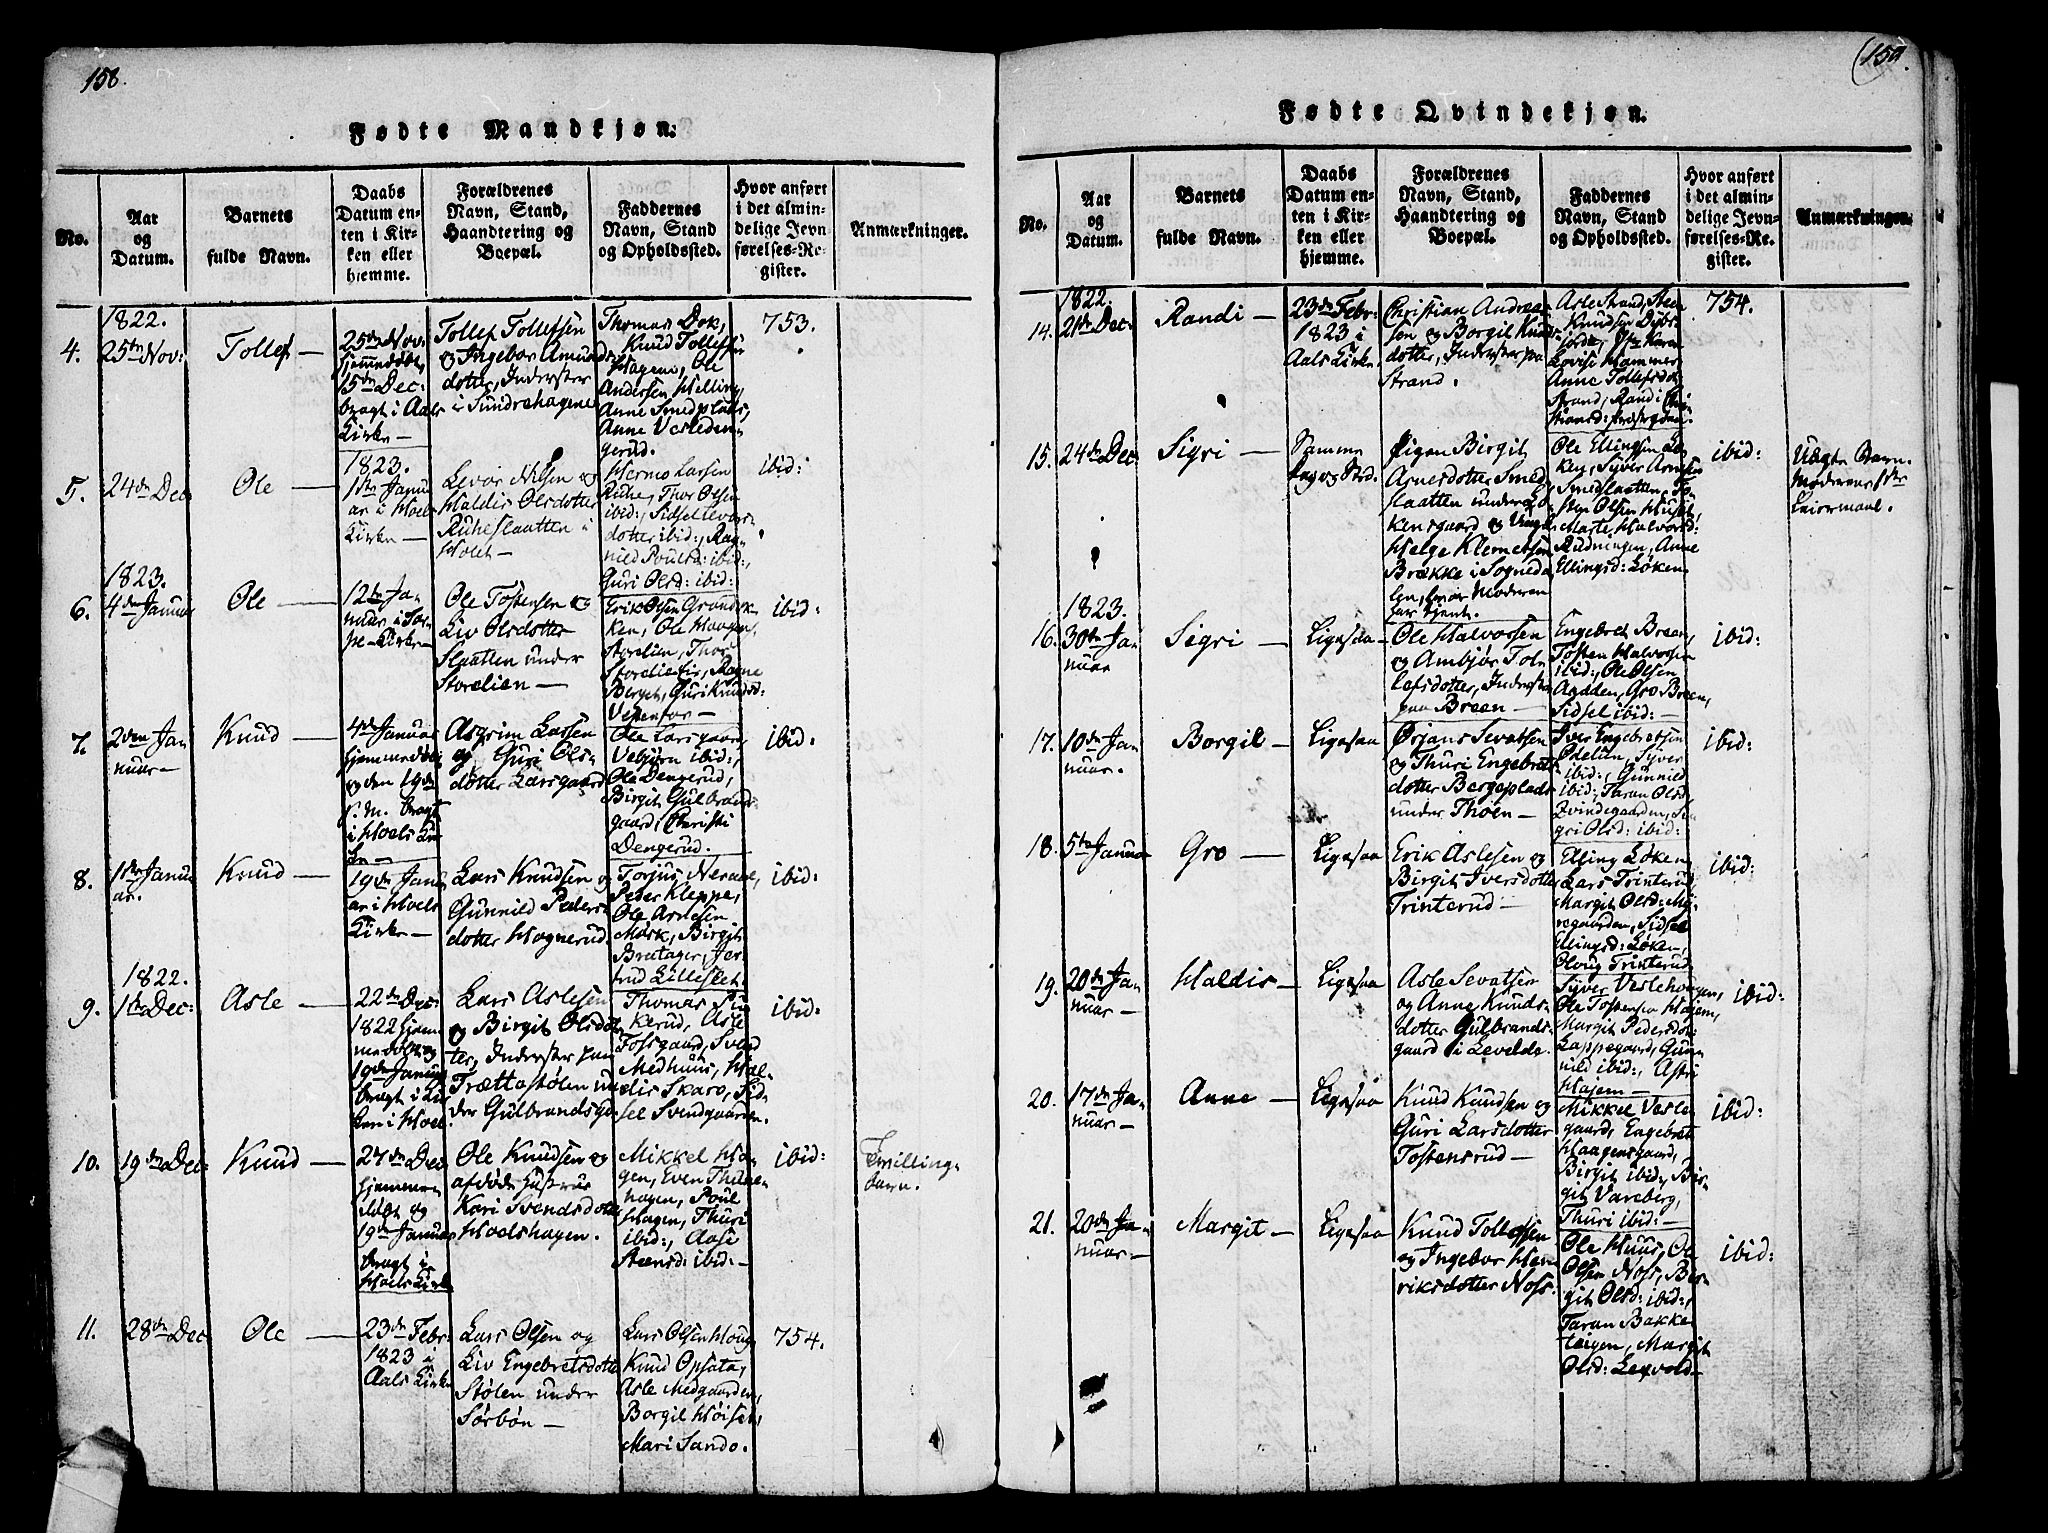 158.
Fødte Mandkjøn.
No.
Aar
og
Datum.
Barnets
fulde Navn.
Daabs
Datum en-
ten i Kir-
ken eller
hjemme.
Forældrenes
Navn, Stand,
Haandtering og
Boepæl.
Faddernes
Navn, Stand
og Opholdssted.
Hvor anført
i det almin-
delige Jevn-
førelses-Re-
gister.
Anmærkninger.
4.
1822.
25de Nov:
Tollef —
25de Nov:
hjemmedøbt,
15de Dec:
bragt i Aals
Kirke —
Tollef Tollefsen
og Ingebor Amunds-
dotter, Inderster
i Sundrehagene
Thomas Dok,
Knud Tollefsen
Hagene, Ole
Andersen Helling,
Anne Smedplads,
Anne Vesleden-
gerud.
753.
5.
24de Dec
Ole —
1823.
1ste Janu-
ar i Hoels
Kirke —
Levor Nilsen og
Haldis Olsdotter
Ruheslaatten i
Holet —
Hermo Larsen
Ruhe, Thor Olsen
ibid:, Sidsel Levors-
dotter ibid:, Rag-
nild Poulsd: ibid:,
Guri Olsd: ibid:
ibid:
6.
1823.
4de Januar
Ole —
12te Ja-
nuar i Tor-
pe-Kirke —
Ole Tostensen og
Liv Olsdotter
Slaatten under
Storelien —
Erik Olsen
Ole Haagens.
Storelien, Thor
Storelien, Ragne
Berget, Guri Knudsd:
ibid:
7.
2den Ja-
nuar —
Knud —
4de Januar
hjemmedøbt
og den 19de
s. m. bragt
i Hoels Kir-
ke —
Asgrim Larsen
og Guri Ols-
dotter Larsgaard
Ole Larsgaard,
Vebjørn ibid:,
Ole Dengerud,
Birgit Gulbrands-
gaard, Christi
Dengerud.
ibid:
8.
1ste Janu-
ar.
Knud —
19de Janu-
ar i Hoels
Kirke —
Lars Knudsen og
Gunnild Peders-
dotter Hognerud.
Torjus Neraae,
Peder Kleppe,
Ole Arnesen
Mørk, Birgit
Bretager, Jer-
trud Lilleslet.
ibid:
9.
1822.
1ste Dec:
Asle —
22de Dec:
1822 hjem-
medøbt og
19de Januar
bragt i Kir-
ken i Hoel.
Lars Aslesen
og Birgit Olsdot-
ter, Inderster paa
Trættestølen un-
der Gulbrandsg:
Thomas
Asle
Fossgaard, Svend
Medhuus, Hal-
dis Skaro, Sid-
sel Svendgaarden.
ibid:
10.
19de Dec:
Knud —
27de Dec
hjemme-
døbt og
19de Januar
bragt i
Hoels Kirke
Ole Knudsen og
afdøde Hustrue
Kari Svendsdotter
Hoelshagen.
Mikkel Ha-
gen, Even Thune-
hagen, Poul
Hagen, Thuri
ibid:, Aase
Steensd: ibid: —
ibid:
Tvilling-
barn.
11.
28de Dec
Ole —
23de Febr:
1823 i
Aals Kirke
Lars Olsen og
Liv Engebretsdotter
Stølen under
Sørbøn —
Lars Olsen Houg,
Knud Opsata,
Asle Medgaarden,
Borgil Høiset,
Mari Sando.
754.
159.
Fødte Qvindekjøn.
No.
Aar
og
Datum.
Barnets
fulde Navn.
Daabs
Datum en-
ten i Kir-
ken eller
hjemme.
Forældrenes
Navn, Stand,
Haandtering og
Boepæl.
Faddernes
Navn, Stand
og Opholdssted.
Hvor anført
i det almin-
delige Jevn-
førelses-Re-
gister.
Anmærkninger.
14.
1822.
21de Dec:
Randi —
23de Febr:
1823 i
Aals Kirke.
Christian Andrea-
sen og Borgil Knuds-
dotter, Inderster paa
Strand.
Asle Strand, Steen
Knudsen
Karen
Lovise Hammer
Anne Tollefsdot:
Strand, Randi
754.
15.
24de Dec
Sigri —
Samme
Dag og Sted.
Pigen Birgit
Asnesdotter Smed-
slaatten under Lø-
kensgaard og
Helge Klemetsen
Brække i Sogneda-
len, hvor Moderen
har tjent.
Ole Ellingsen Lø-
ken, Syver Arnesen
Smedslaatten,
Olsen
Marte Halvorsd:
Rudningen, Anne
Ellingsd: Løken
ibid:
Uægte Barn.
Moderens 1ste
Leiermaal.
16.
1823.
30te Ja-
nuar
Sigri —
Ligesaa —
Ole Halvorsen
og Ambjør Tol-
lefsdotter, Inderster
paa Breen —
Engebret Breen,
Tosten Halvorsen
ibid:, Ole Olsen
Gro Breen,
Sidsel ibid: —
ibid:
17.
10de Ja-
nuar.
Borgil —
Ligesaa
Ørjans Sevatsen
og Thuri Engebrets-
dotter Bergeplads
under Thoen —
Iver Engebretsen
Ødelien, Syver
ibid:, Gunnild
ibid:, Taran Olsd:
Qvindegaarden, Si-
gri Olsd: ibid:
ibid:
18.
5te Januar
Gro —
Ligesaa
Erik Aslesen og
Birgit Iversdotter
Trinterud —
Elling Løken,
Lars Trinterud,
Margit Olsd:
Sidsel
Ellingsd: Løken,
Oloug Trinterud
ibid:
19.
20de Ja-
nuar —
Haldis —
Ligesaa
Asle Sevatsen
og Anne Knuds-
dotter Gulbrands-
gaard i Levelde.
Syver Veslehougen,
Ole Tostensen Hajem,
Margit Pedersdot:
Lappegaard, Gun-
nild ibid:, Astri
Hajem —
ibid:
20.
17de Ja-
nuar —
Anne —
Ligesaa
Knud Knudsen og
Guri Larsdotter
Tostensrud —
Mikkel Vesle-
gaard, Engebret
Haagensgaard,
Birgit ibid:, Bir-
git Vareberg,
Thuri ibid: —
ibid:
21.
20de Ja-
nuar —
Margit —
Ligesaa
Knud Tollefsen
og Ingebor Hen-
riksdotter Noss.
Ole Huus, Ole
Olsen Noss, Bir-
git Olsd: ibid:,
Taran Bakke-
teigen, Margit
Olsd: Lexvold —
ibid: